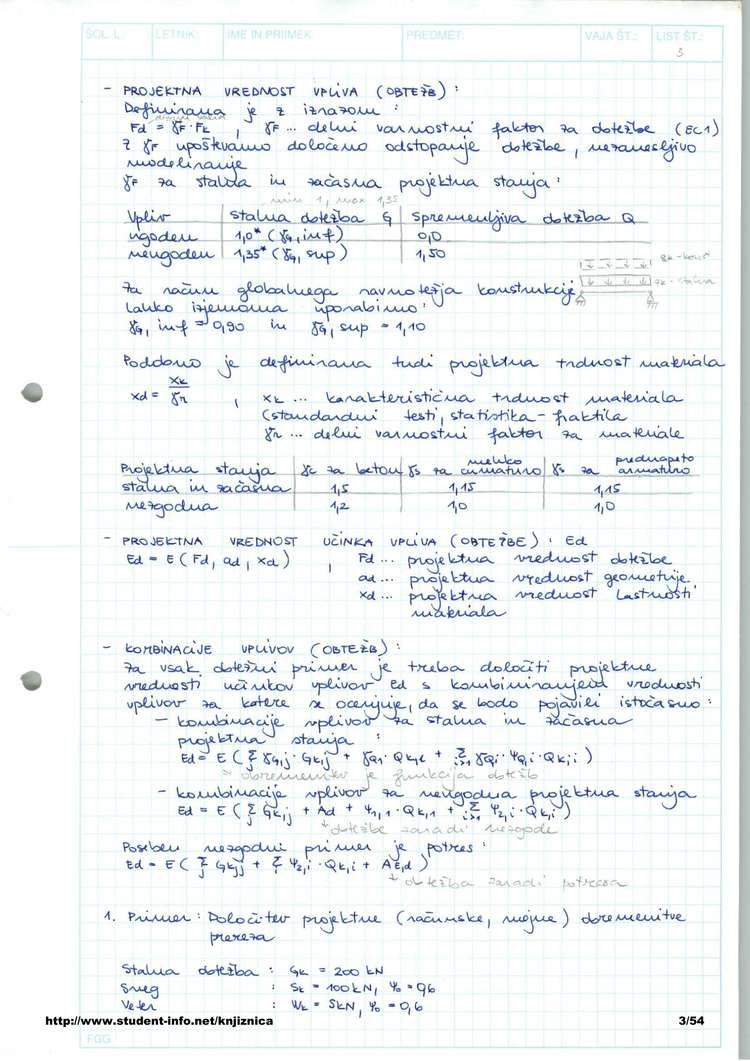 ŠOL. L.: LETNIK: IME IN PRIIMEK: PREDMET: VAJA ŠT.: LIST ŠT.:
3
- PROJEKTNA VREDNOST VPLIVA (OBTEŽB):
Definirana je z izrazom:
Fd = γF · Fk , γF ... delni varnostni faktor za obtežbe (EC1)
Z γF upoštevamo določeno odstopanje obtežbe, nezanesljivo
modeliranje
γF za stalna in začasna projektna stanja:
min 1, max 1,35
Vpliv | Stalna obtežba G | Spremenljiva obtežba Q
ugoden | 1,0* (γG,inf) | 0,0
neugoden | 1,35* (γG,sup) | 1,50
Za račun globalnega ravnotežja konstrukcije
lahko izjemoma uporabimo:
γG,inf = 0,90 in γG,sup = 1,10
Podobno je definirana tudi projektna trdnost materiala
xd = xk/γr , xk ... karakteristična trdnost materiala
(standardni testi, statistika - fraktila
γr ... delni varnostni faktor za materiale
Projektna stanja | γc za beton | γs za mehko armaturo | γs za prednapeto armaturo
stalna in začasna | 1,5 | 1,15 | 1,15
nezgodna | 1,2 | 1,0 | 1,0
- PROJEKTNA VREDNOST UČINKA VPLIVA (OBTEŽBE): Ed
Ed = E (Fd, ad, xd) , Fd ... projektna vrednost obtežbe
ad ... projektna vrednost geometrije
xd ... projektna vrednost lastnosti
materiala
- KOMBINACIJE VPLIVOV (OBTEŽB):
Za vsak obtežni primer je treba določiti projektne
vrednosti učinkov vplivov Ed s kombiniranjem vrednosti
vplivov za katere se ocenjuje, da se bodo pojavili istočasno:
- kombinacije vplivov za stalna in začasna
projektna stanja:
Ed = E (Σj γG,j · Gk,j + γQ1 · Qk,1 + Σi>1 γQi · ψ0,i · Qk,i)
= obremenitev je funkcija obtežb
- kombinacije vplivov za nezgodna projektna stanja
Ed = E (Σj Gk,j + Ad + ψ1,1 · Qk,1 + Σi>1 ψ2,i · Qk,i)
↓ obtežbe zaradi nezgode
Poseben nezgodni primer je potres:
Ed = E (Σj Gk,j + Σi ψ2,i · Qk,i + AE,d)
↓ obtežba zaradi potresa
1. Primer: Določitev projektne (računske, mejne) obremenitve
prereza
Stalna obtežba : Gk = 200 kN
Sneg : Sk = 100 kN, ψ0 = 0,6
Veter : Wk = 5kN, ψ0 = 0,6
http://www.student-info.net/knjiznica 3/54
FGG